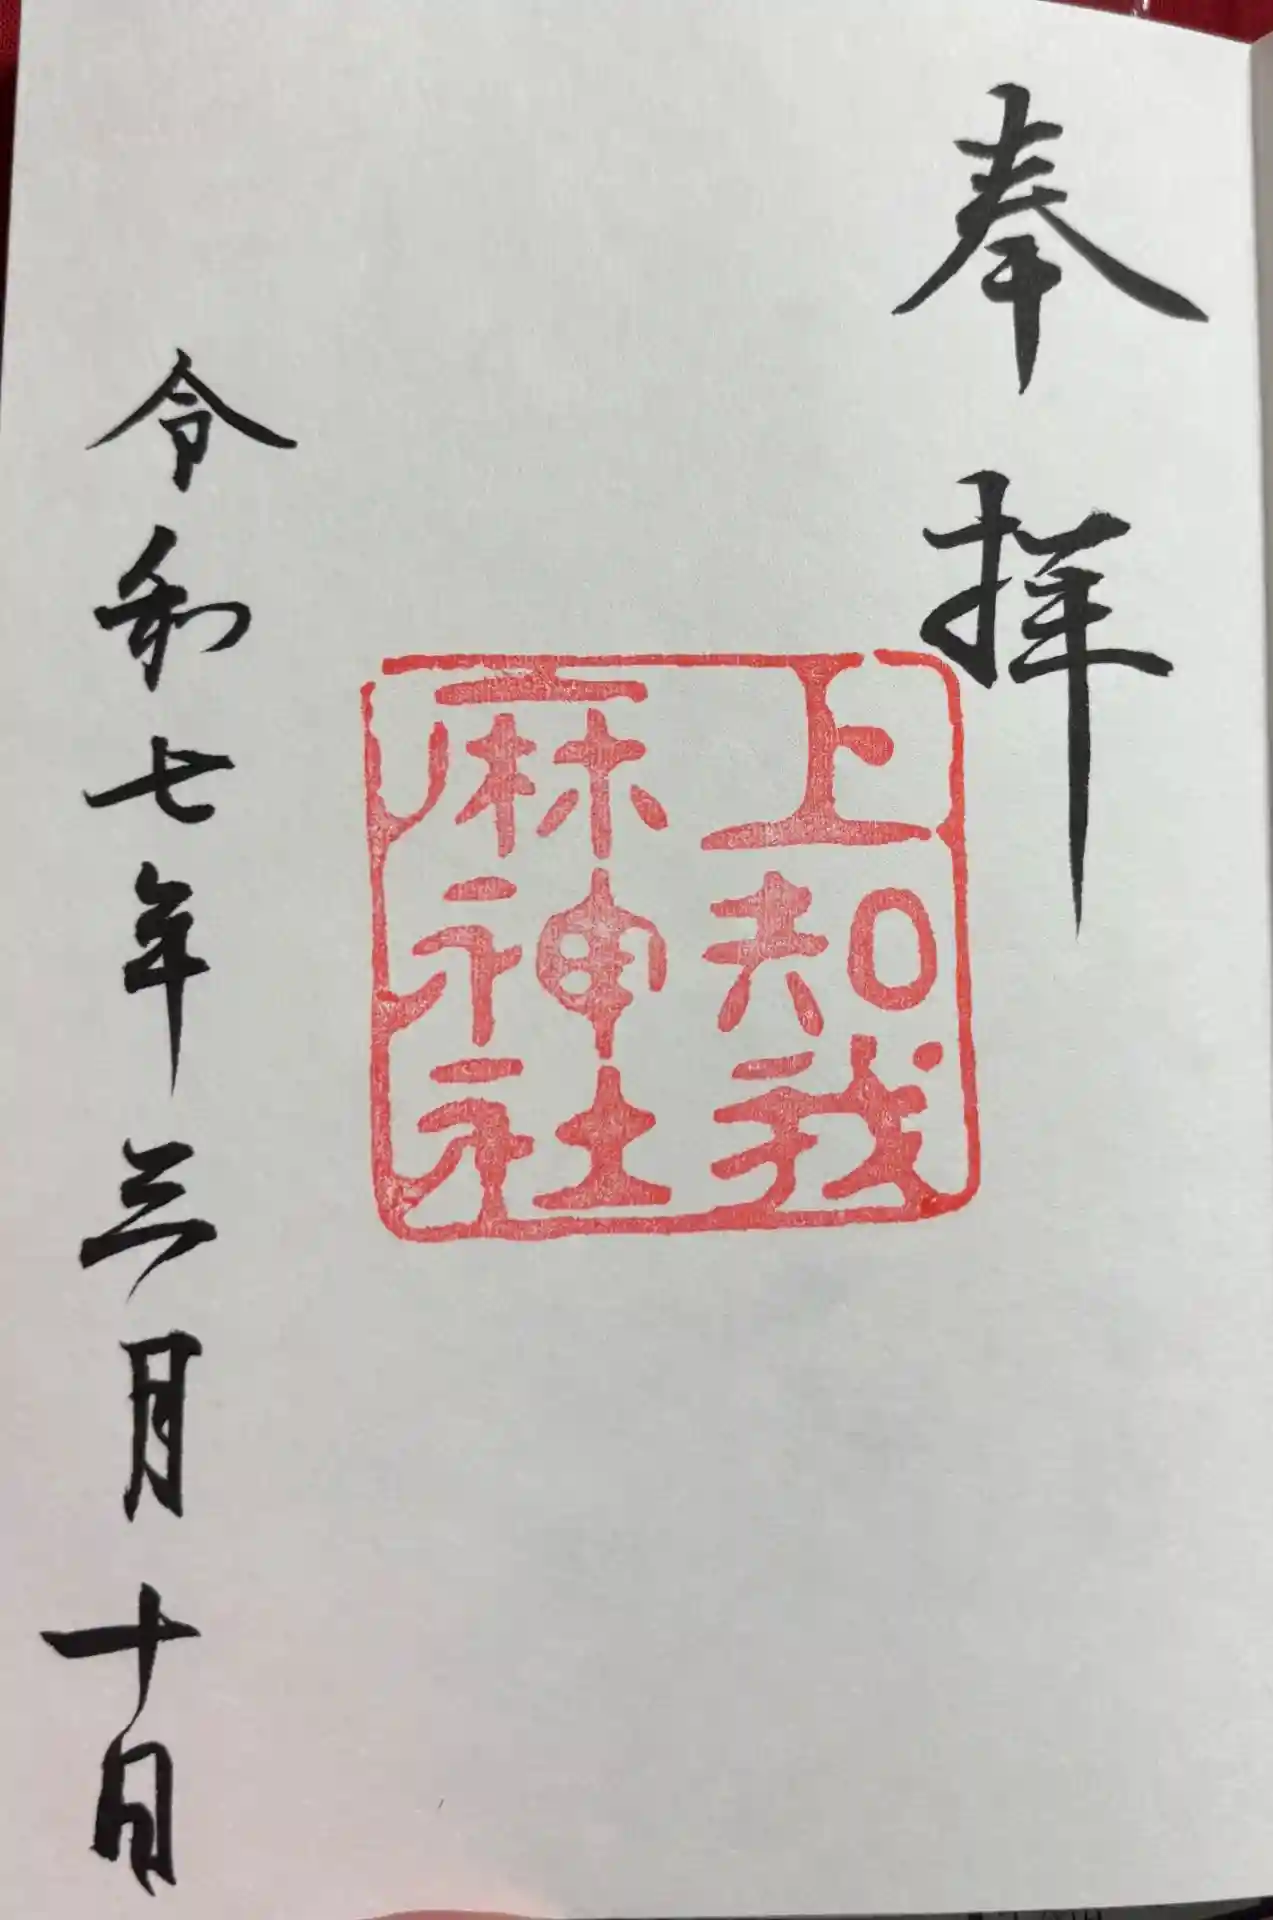 奉拝
上知我
麻神社
令和七年三月十日